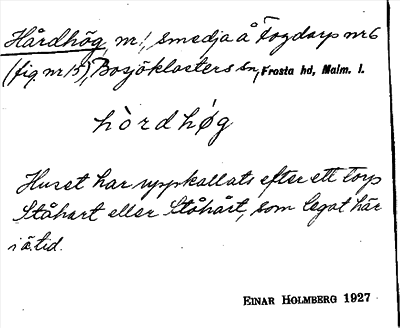 Hårdhög, nr!, smedja å Fogdarp nr 6
(fig. nr 15), Bosjöklosters sn, Frosta hd, Malm. l.
hòrdhøg
Huset har uppkallats efter ett torp
Ståhart eller Ståhårt, som legat här
i ä. tid.
EINAR HOLMBERG 1927